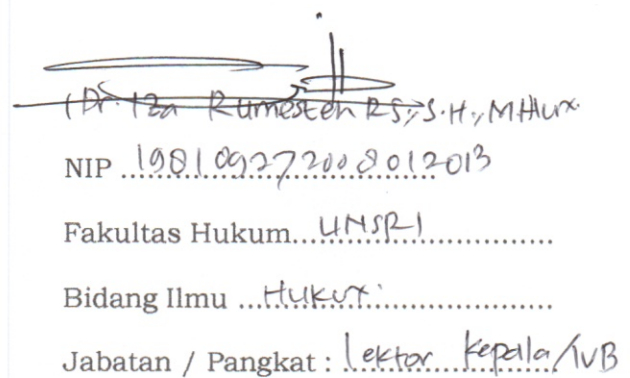 (Dr. Iza Rumesten RS, S.H., M.Hum.
NIP 198109272008012013
Fakultas Hukum UNSRI
Bidang Ilmu Hukum
Jabatan / Pangkat : Lektor Kepala/IVB